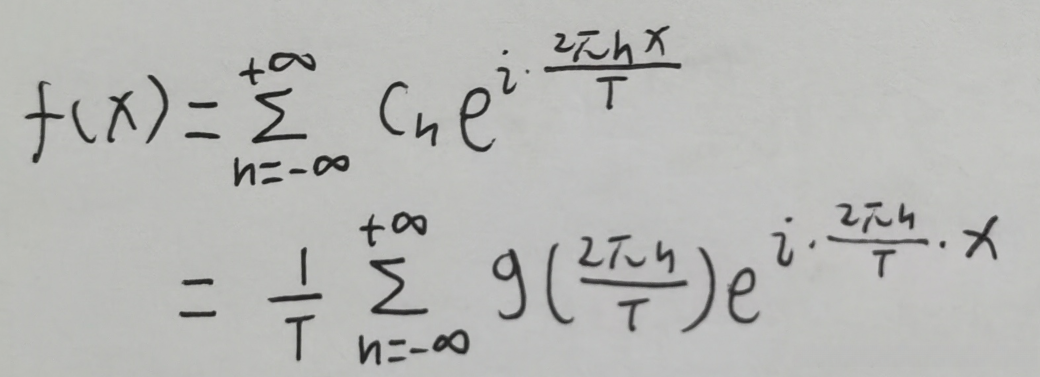 f(x) = \sum_{n=-\infty}^{+\infty} C_n e^{i \cdot \frac{2\pi n x}{T}}
= \frac{1}{T} \sum_{n=-\infty}^{+\infty} g(\frac{2\pi n}{T}) e^{i \cdot \frac{2\pi n}{T} \cdot x}